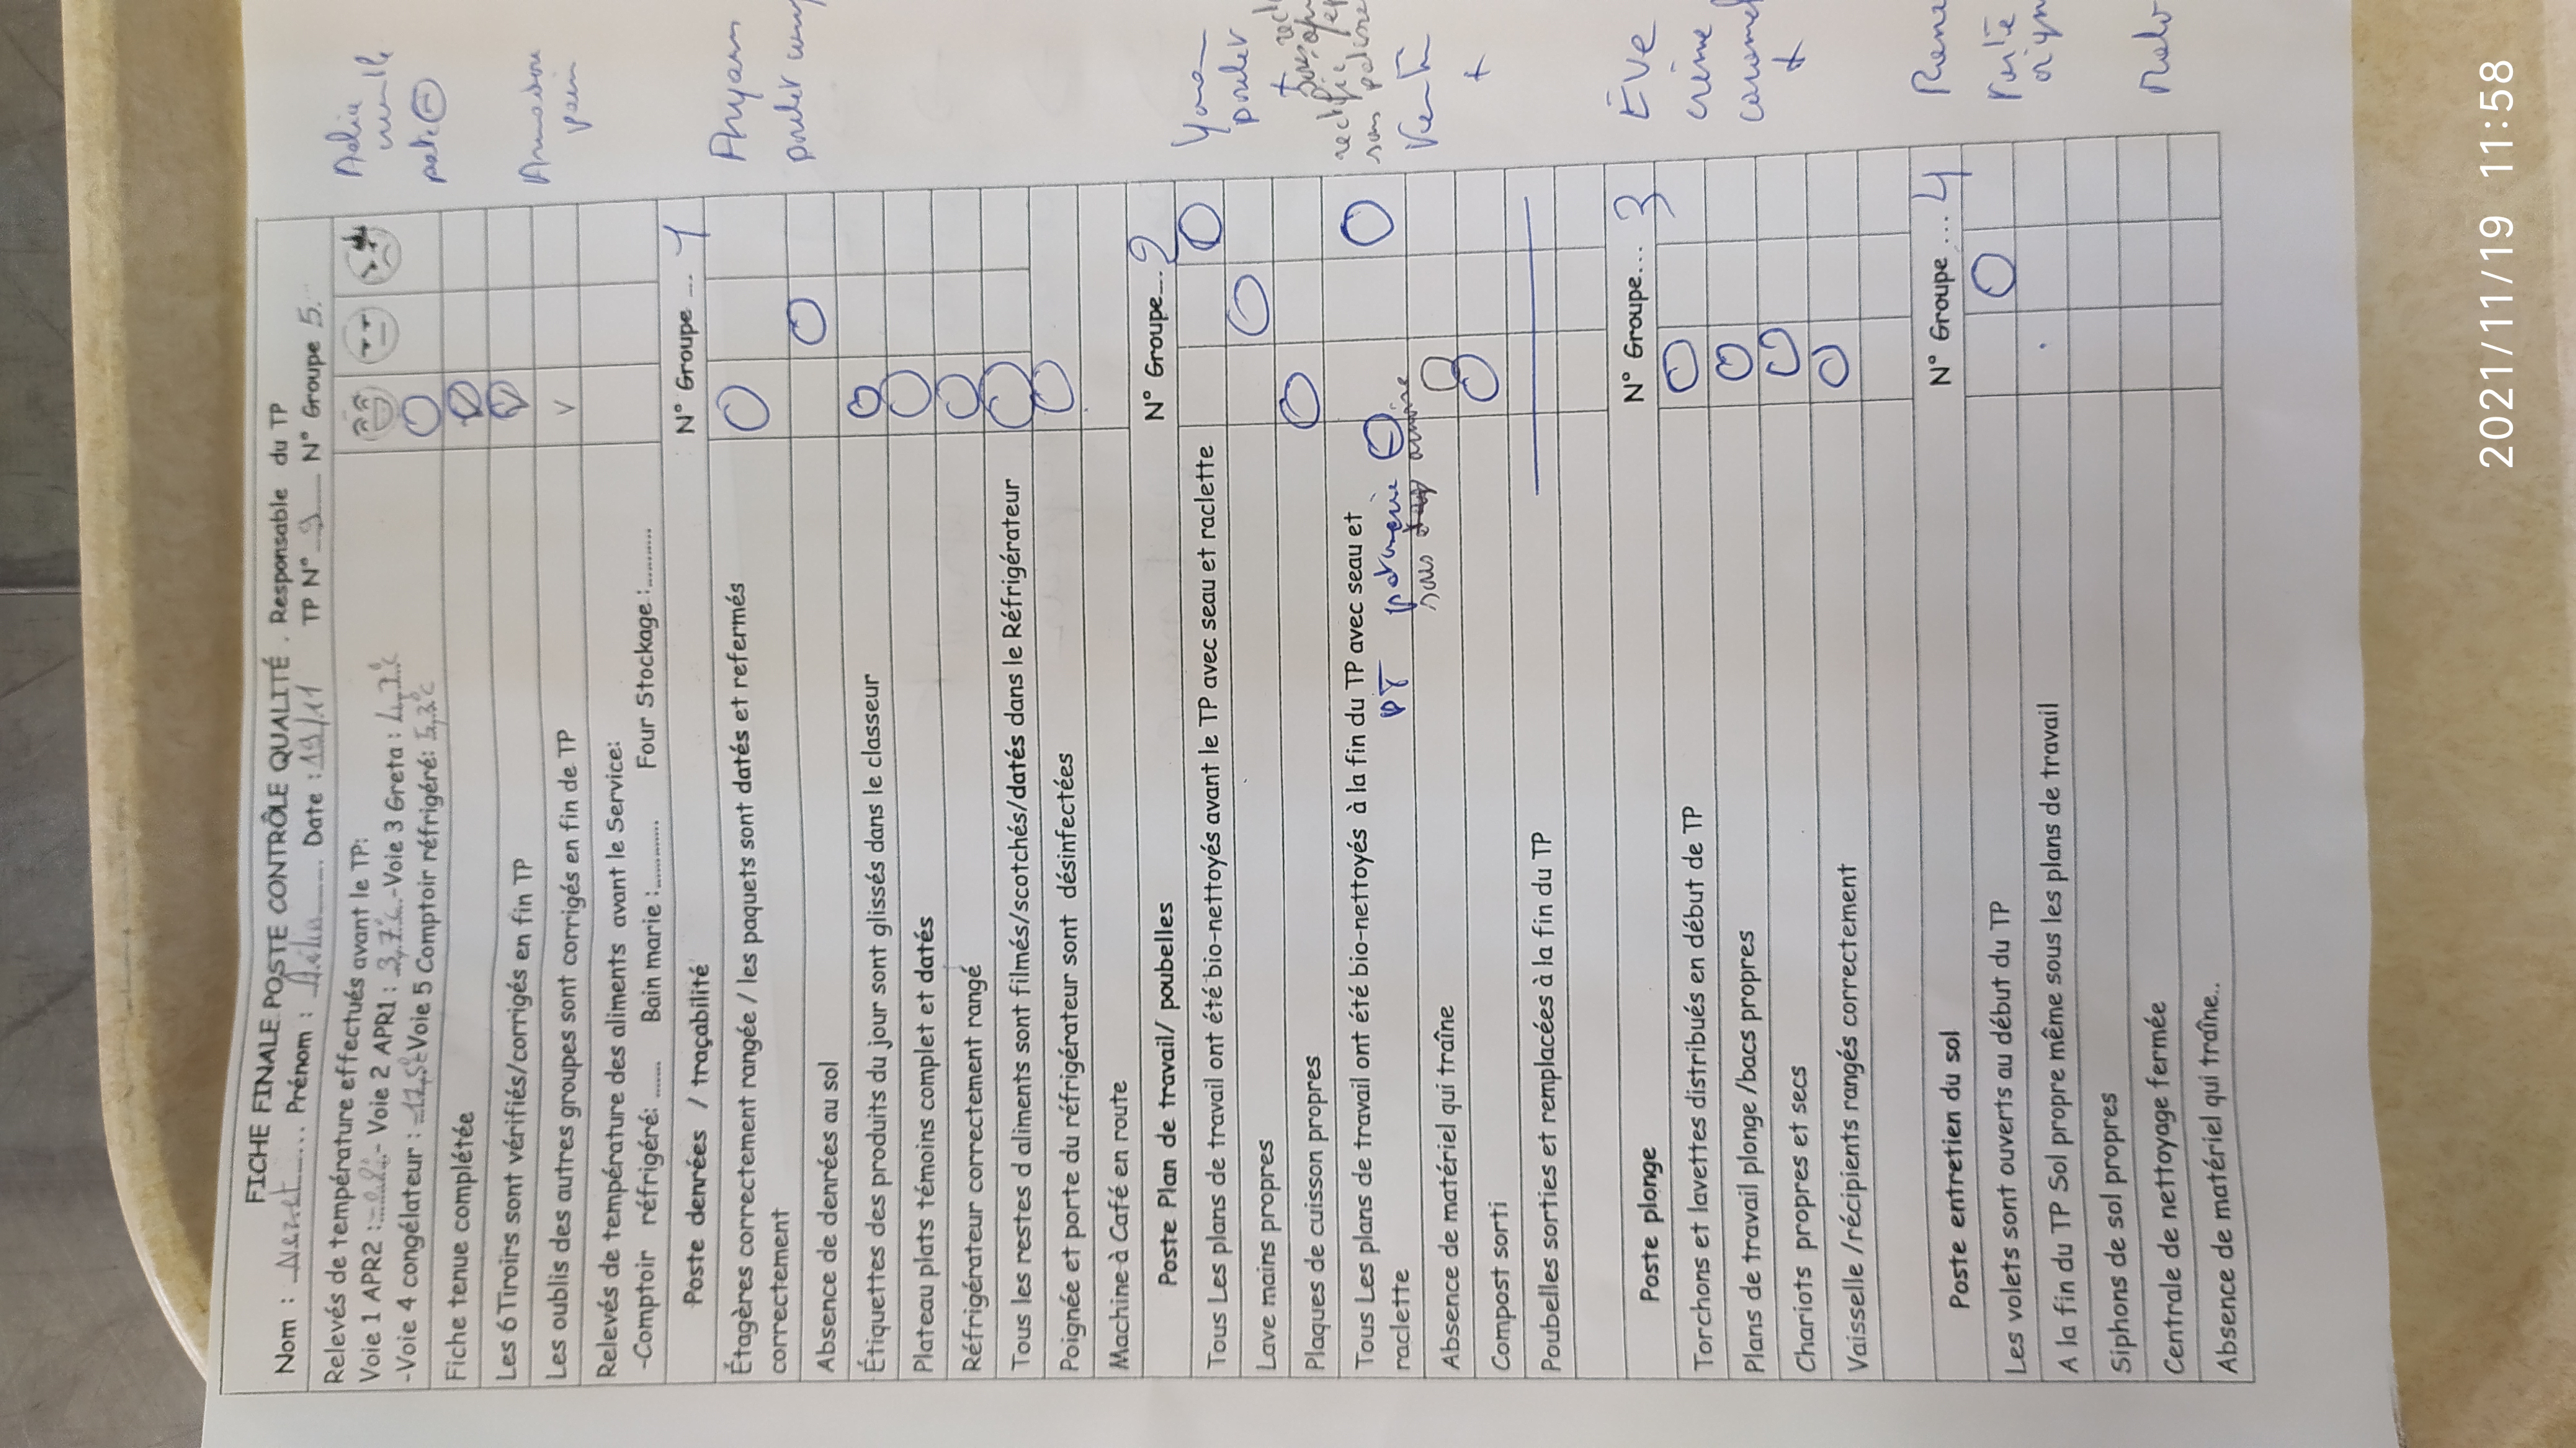 FICHE FINALE POSTE CONTRÔLE QUALITÉ . Responsable du TP
Nom : Prénom : Date : 19/11 TP N° 9 N° Groupe 5.
Relevés de température effectués avant le TP:
Voie 1 APR2 : - Voie 2 APR1 : 3,7°c -Voie 3 Greta :
-Voie 4 congélateur : Voie 5 Comptoir réfrigéré: 5,2°c
Fiche tenue complétée
Les 6Tiroirs sont vérifiés/corrigés en fin TP
Les oublis des autres groupes sont corrigés en fin de TP V
Relevés de température des aliments avant le Service:
-Comptoir réfrigéré: ........ Bain marie :............ Four Stockage :..........
Poste denrées / traçabilité N° Groupe ... 1
Étagères correctement rangée / les paquets sont datés et refermés
correctement
Absence de denrées au sol
Étiquettes des produits du jour sont glissés dans le classeur
Plateau plats témoins complet et datés
Réfrigérateur correctement rangé
Tous les restes d aliments sont filmés/scotchés/datés dans le Réfrigérateur
Poignée et porte du réfrigérateur sont désinfectées
Machine à Café en route
Poste Plan de travail/ poubelles N° Groupe... 2
Tous Les plans de travail ont été bio-nettoyés avant le TP avec seau et raclette
Lave mains propres
Plaques de cuisson propres
Tous Les plans de travail ont été bio-nettoyés à la fin du TP avec seau et
raclette
PT
sous armoire
Absence de matériel qui traîne
Compost sorti
Poubelles sorties et remplacées à la fin du TP
Poste plonge N° Groupe... 3
Torchons et lavettes distribués en début de TP
Plans de travail plonge /bacs propres
Chariots propres et secs
Vaisselle /récipients rangés correctement
Poste entretien du sol N° Groupe ... 4
Les volets sont ouverts au début du TP
A la fin du TP Sol propre même sous les plans de travail
Siphons de sol propres
Centrale de nettoyage fermée
Absence de matériel qui traîne..
Amadou
pain
poulet
poulet
+
+
Ève
crème
+
2021/11/19 11:58